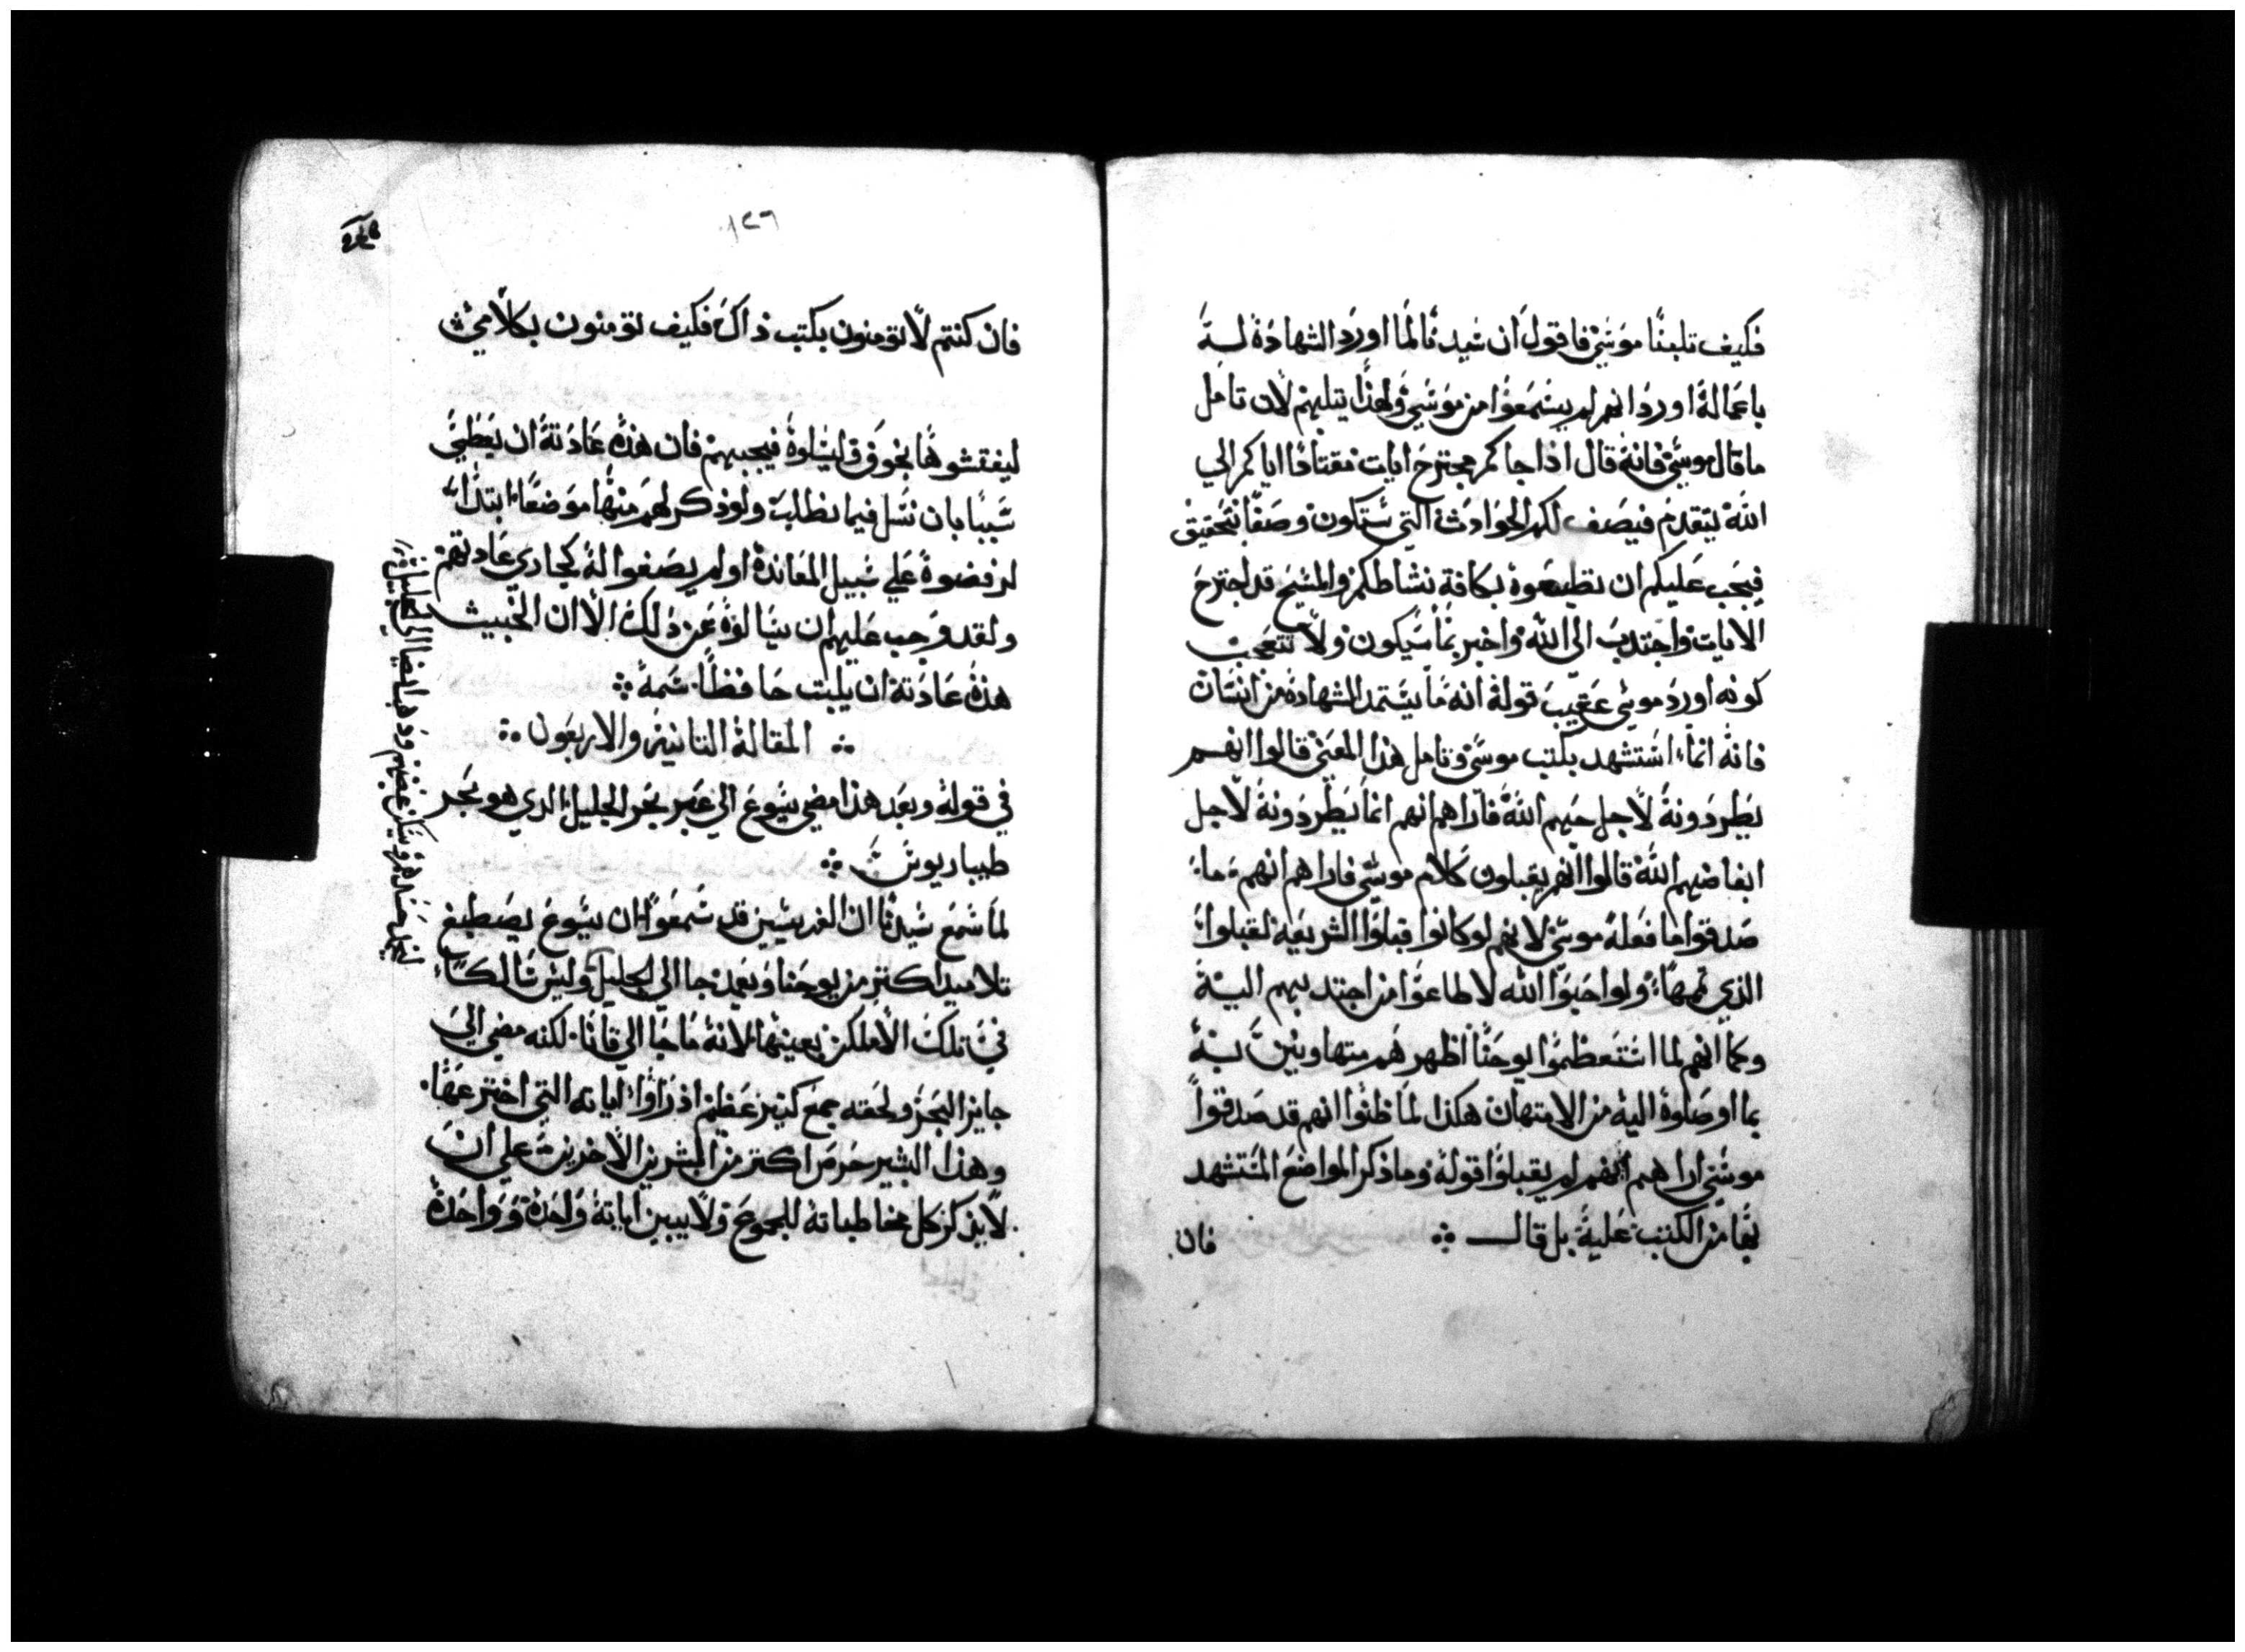 فكيف تلبنا موسي فاقول ان سيدنا لما اورد الشهادة له
باعماله اورد انهم لم يسمعوا من موسي ولهذا يتلبهم لان تامل
ما قال موسي فانه قال اذا جاكم مجترح ايات مقتادا اياكم الي
الله يتقدم فيصف لكم الحوادث التي ستكون وصفا بتحقيق
فيجب عليكم ان تطيعوه بكافة نشاطكم والمسيح قد اجترح
الايات واجتدب الي الله واخبر بما سيكون ولا تتعجب
كونه اورد موسي عقيب قوله انه ما يستمد الشهادة من انسان
فانه انما استشهد بكتب موسي وتامل هذا المعني قالوا انهم
يطردونه لاجل حبهم الله فاراهم انهم انما يطردونه لاجل
ابغاضهم الله قالوا انهم يقبلون كلام موسي فاراهم انهم ما
صدقوا ما فعله موسي لانهم لو كانوا قبلوا الشريعه لقبلوا
الذي تممها ولو احبوا الله لاطاعوا من اجتدبهم اليه
وكما انهم لما استعظموا يوحنا اظهرهم متهاونين به
بما اوصلوه اليه من الامتهان هكذا لما ظنوا انهم قد صدقوا
موسي اراهم انهم لم يقبلوا قوله وما ذكر المواضع المستشهد
بها من الكتب عليه بل قال
فان
١٢٦
فان كنتم لا تومنون بكتب ذاك فكيف تومنون بكلامي
ليفتشوها بخوف فان هذه عادته ان يعطي
سببا بان نسل فيما نطلب ولو ذكر لهم منها موضعا ابتداء
لرفضوه علي سبيل المعانده او لم يصغوا له كجاري عادتهم
ولقد وجب عليهم ان يسالوه عن ذلك الا ان الخبيث
هذه عادته ان يلبت حافظا سمه
المقالة التانيه والاربعون
في قوله وبعد هذا مضي يسوع الي عبر بحر الجليل الدي هو بحر
طيباريوس
لما سمع سيدنا ان الفريسيين قد سمعوا ان يسوع يصطبغ
تلاميد اكتر من يوحنا وبعد جا الي الجليل وليس سالكا
في تلك الاماكن بعينها لانه ما جا الي قانا لكنه مضي الي
جايز البحر ولحقه جمع كثير عظيم اذ راوا اياته التي اخترعها
وهذا البشير حرص اكتر من المبشرين الاخرين علي ان
لا يذكر كل مخاطباته للجموع ولا يبين اياته واحدة وواحدة